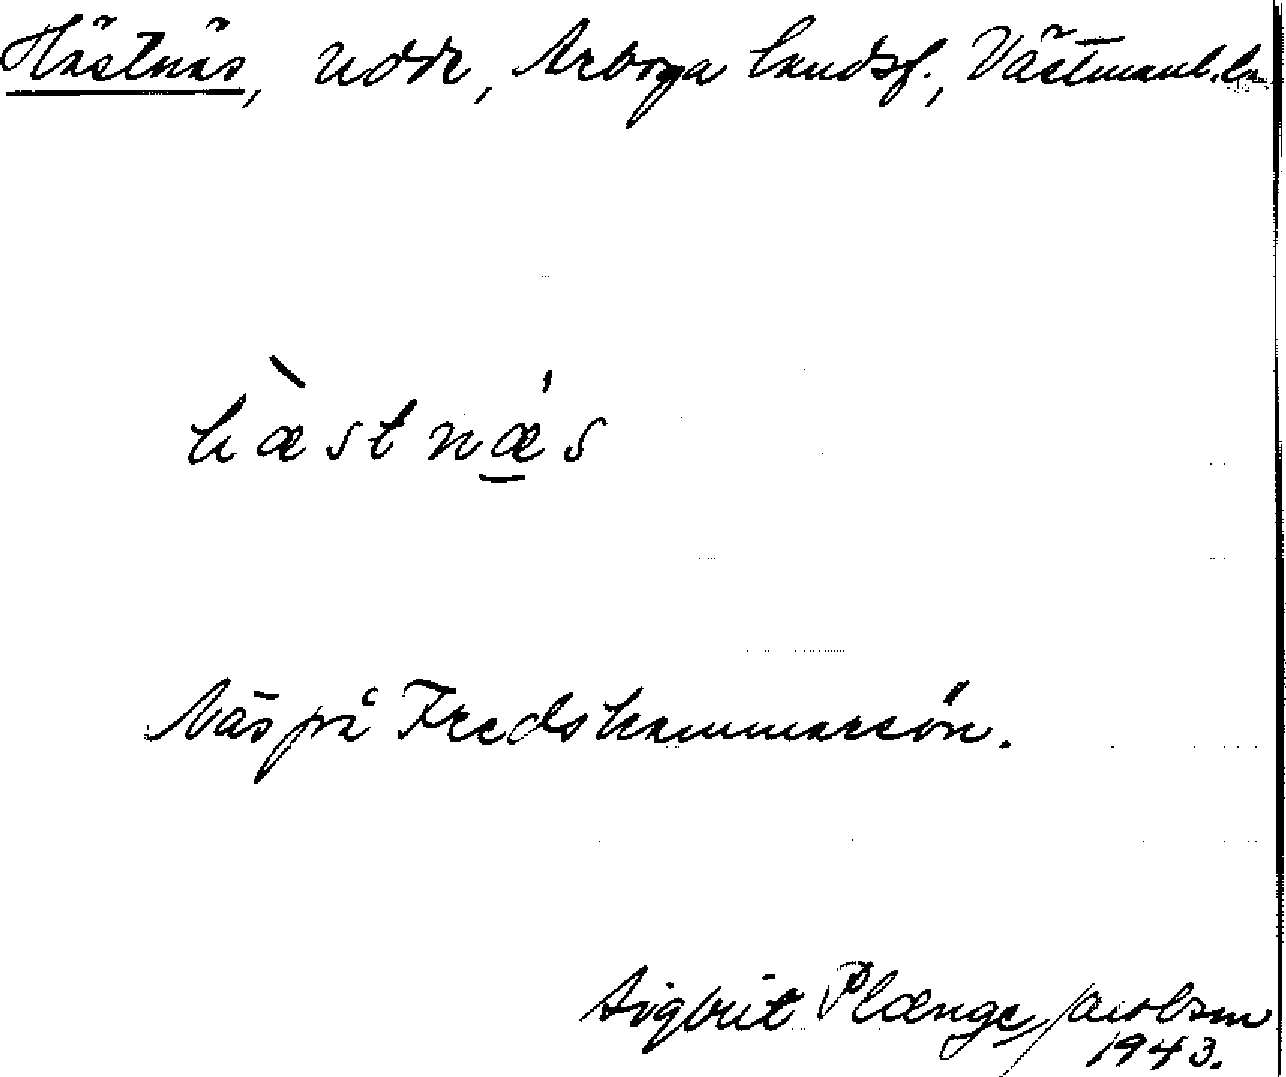 Hästnäs, udde, Arboga landsf., Västmanl. län
hæstnæs
Näs på Fredshammarsön.
Sigbrit Plænge Jacobson
1943.